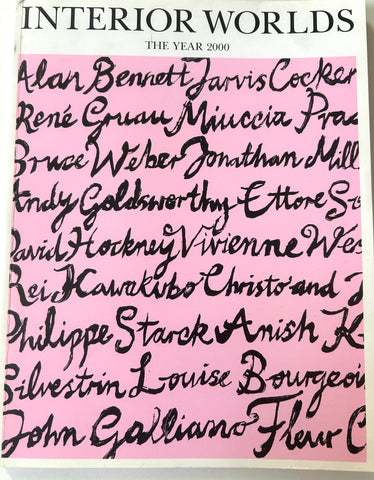 INTERIOR WORLDS
THE YEAR 2000
Alan Bennett Jarvis Cocker
René Gruau Miuccia Prad
Bruce Weber Jonathan Mill
Andy Goldsworthy Ettore So
David Hockney Vivienne Wes
Rei Kawakubo Christo and J
Philippe Starck Anish K
Silvestrin Louise Bourgeois
John Galliano Fleur C